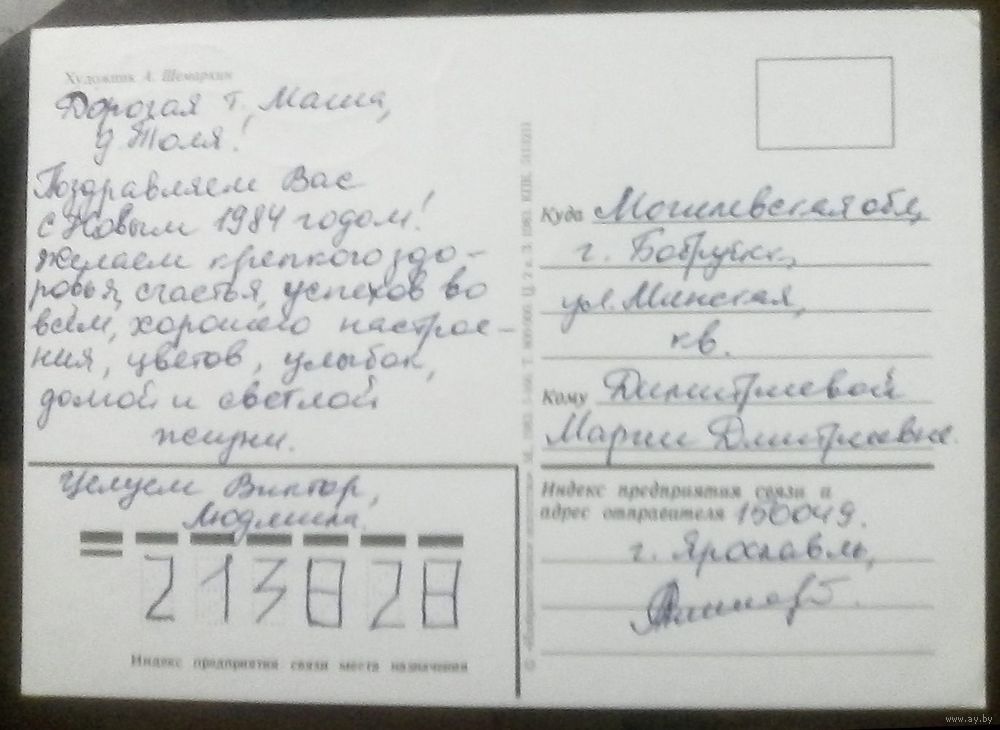 Художник А. Шемаркин
Дорогая т. Маша,
д Толя!
Поздравляем Вас
с Новым 1984 годом!
Желаем крепкого здо-
ровья, счастья, успехов во
всём, хорошего настрое-
ния, цветов, улыбок,
долгой и светлой
жизни.
Целуем Виктор,
Людмила.
213828
Индекс предприятия связи места назначения
Куда Могилевская обл,
г. Бобруйск,
ул. Минская,
кв.
Кому Димитриевой
Марии Дмитриевне.
Индекс предприятия связи и
адрес отправителя 150049.
г. Ярославль,
www.ay.by